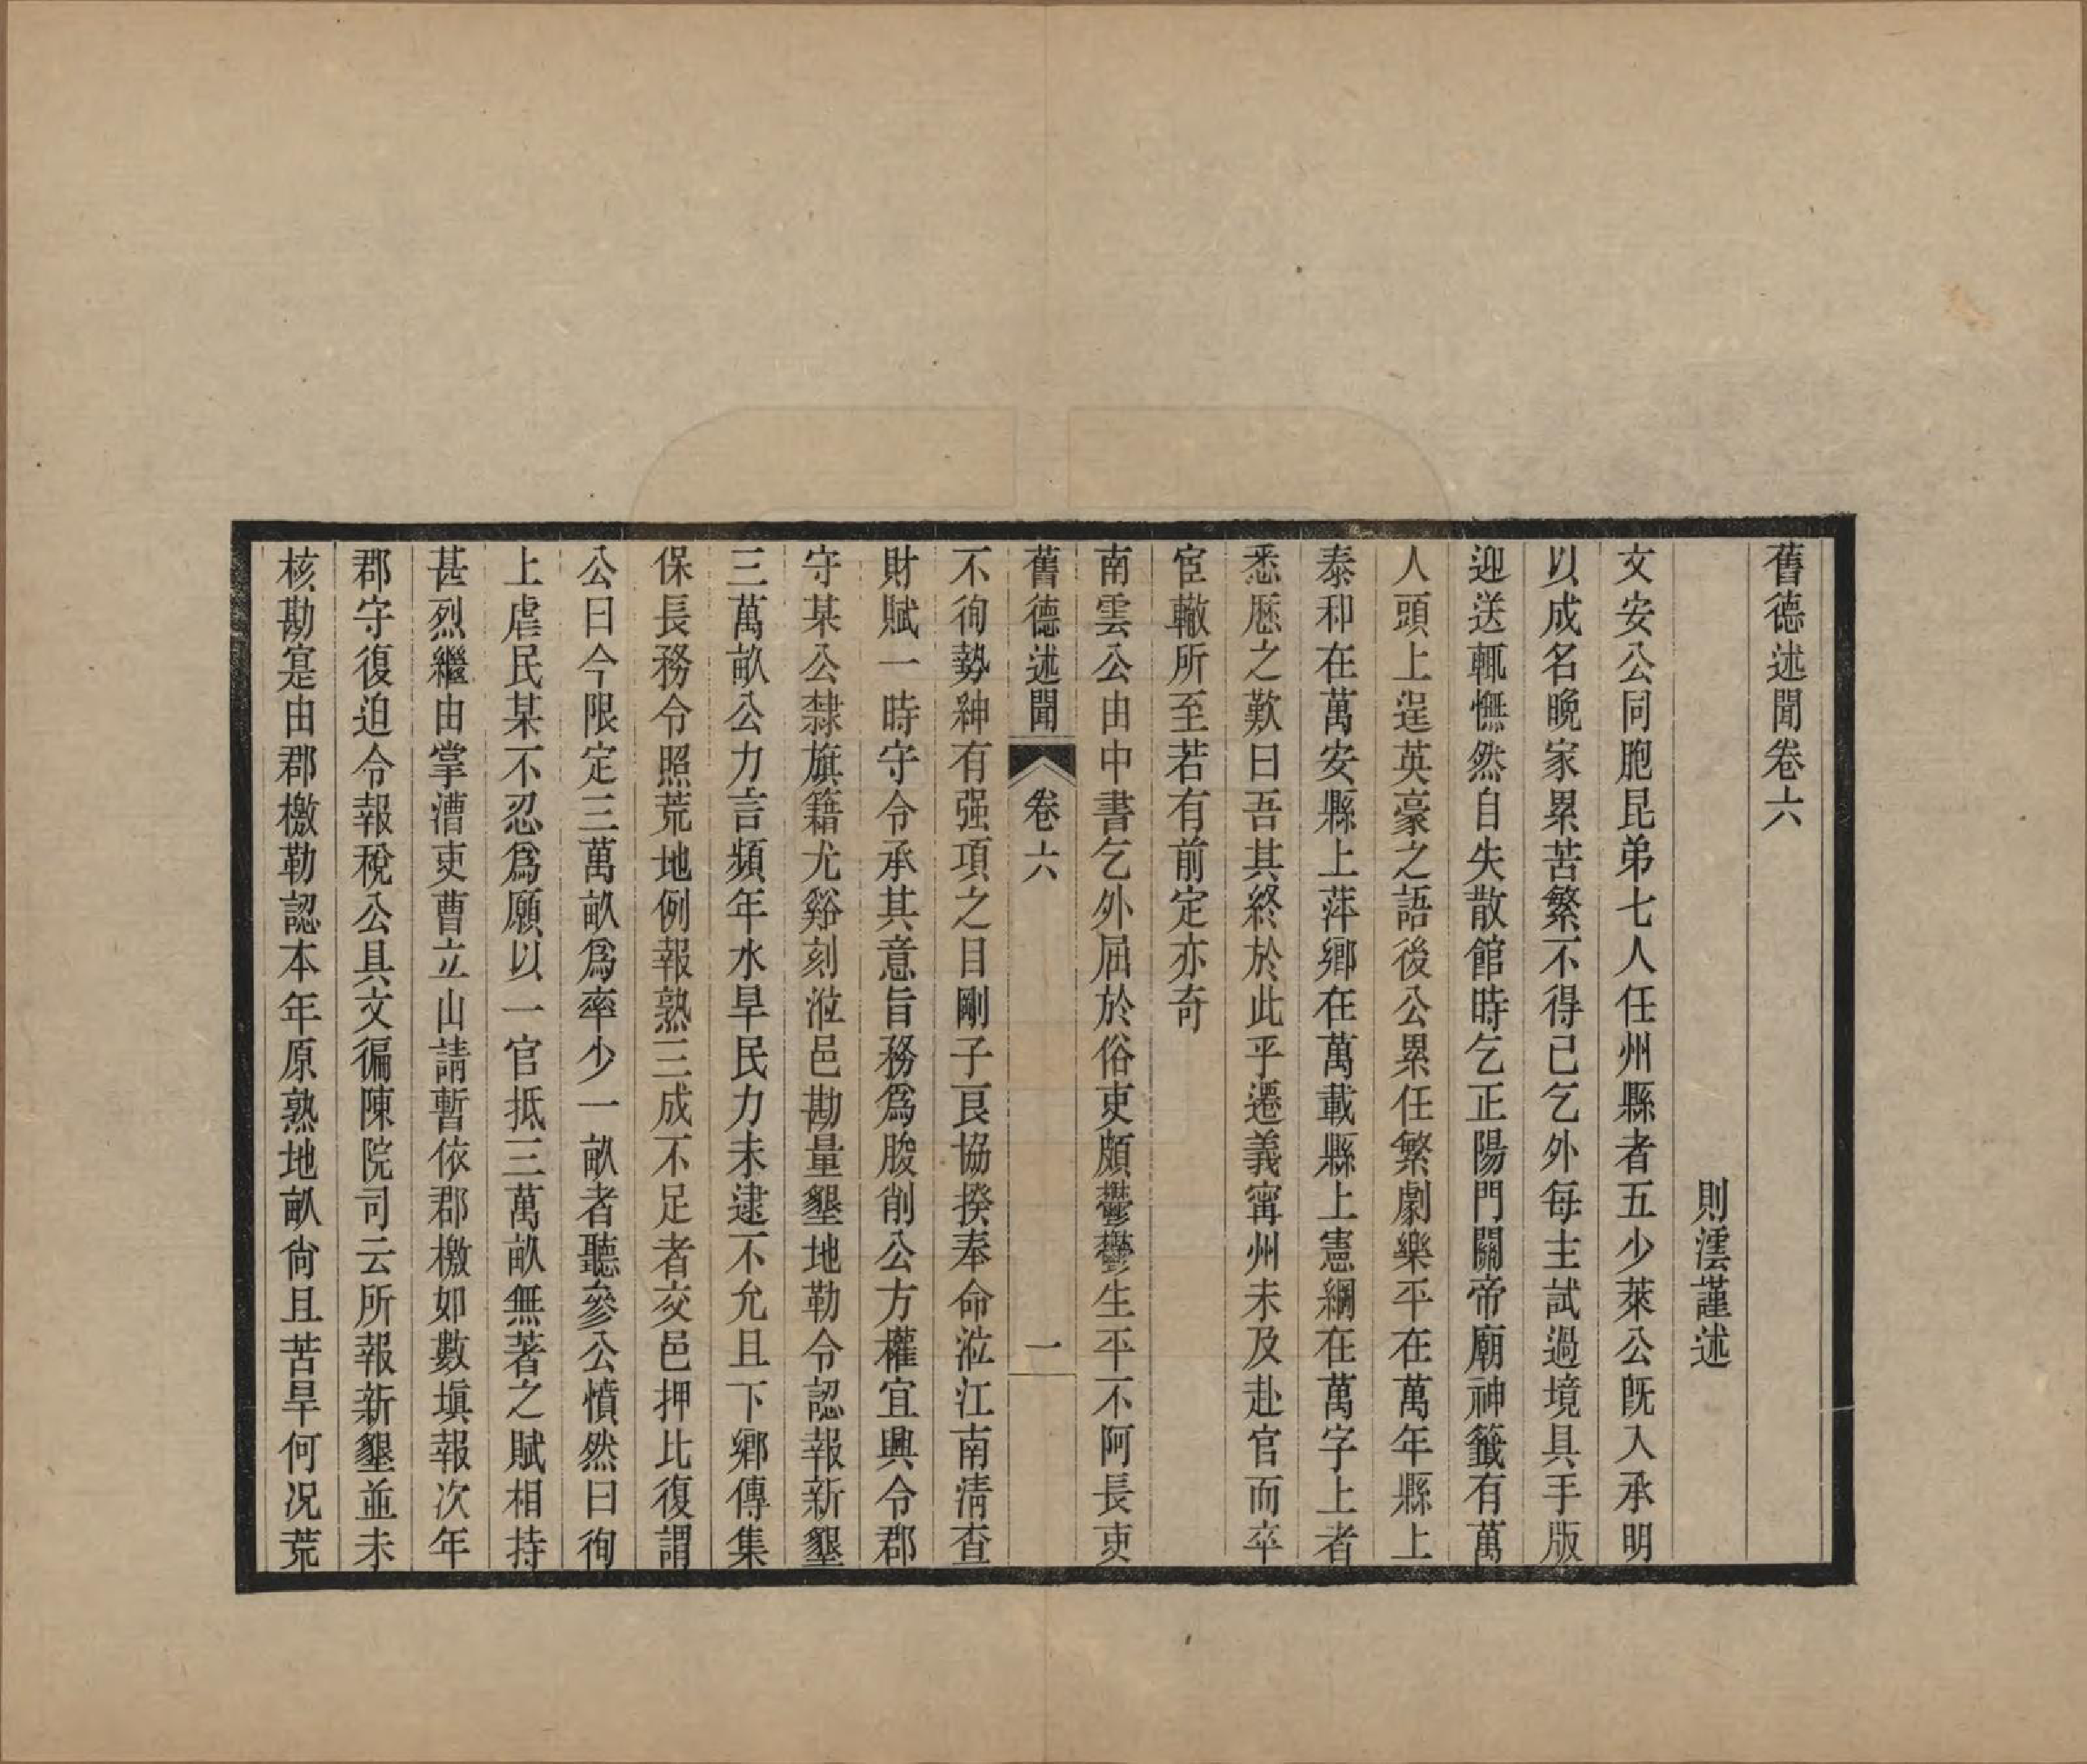 舊德述聞卷六
則澐謹述
文安公同胞昆弟七人任州縣者五少萊公旣入承明
以成名晚家累苦繁不得已乞外每主試過境具手版
迎送輒憮然自失散館時乞正陽門關帝廟神籤有萬
人頭上逞英豪之語後公累任繁劇樂平在萬年縣上
泰和在萬安縣上萍鄉在萬載縣上憲綱在萬字上者
悉歷之歎曰吾其終於此乎遷義甯州未及赴官而卒
宦轍所至若有前定亦奇
南雲公由中書乞外屈於俗吏頗鬱鬱生平不阿長吏
舊德述聞 卷六 一
不徇勢紳有强項之目剛子良協揆奉命涖江南淸查
財賦一時守令承其意旨務爲朘削公方權宜興令郡
守某公隸旗籍尤谿刻涖邑勘量墾地勒令認報新墾
三萬畝公力言頻年水旱民力未逮不允且下鄉傳集
保長務令照荒地例報熟三成不足者交邑押比復謂
公曰今限定三萬畝爲率少一畝者聽參公憤然曰徇
上虐民某不忍爲願以一官抵三萬畝無著之賦相持
甚烈繼由掌漕吏曹立山請暫依郡檄如數塡報次年
郡守復迫令報稅公具文徧陳院司云所報新墾並未
核勘寔由郡檄勒認本年原熟地畝尙且苦旱何况荒